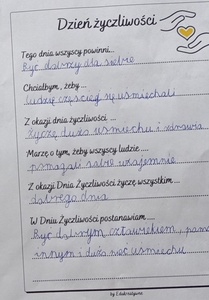 Dzień życzliwości
Tego dnia wszyscy powinni...
Być dobrzy dla siebie
Chciałbym , żeby ...
ludzie częściej się uśmiechali
Z okazji dnia życzliwości ...
Życzę dużo uśmiechu i zdrowia
Marzę o tym, żeby wszyscy ludzie ....
pomagali sobie wzajemnie
Z okazji Dnia Życzliwości życzę wszystkim ..
dobrego dnia
W Dniu Życzliwości postanawiam ....
Być dobrym człowiekiem,
innym i dużo uśmiechu